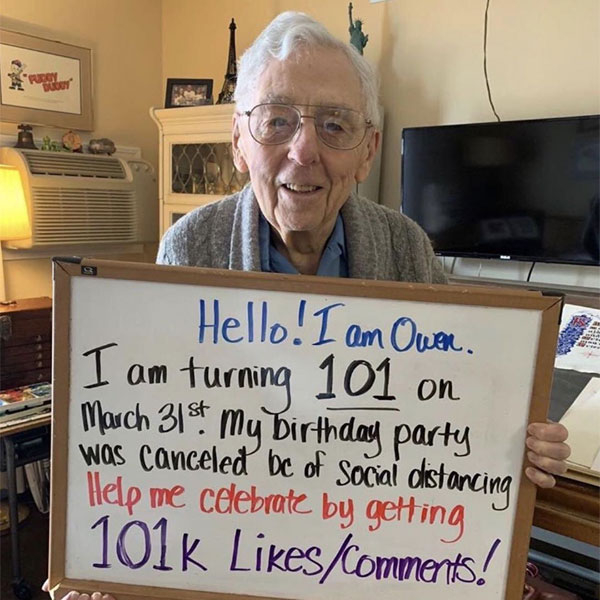 FUDDY
DUDDY
Hello! I am Owen.
I am turning 101 on
March 31st. My birthday party
was canceled bc of social distancing
Help me celebrate by getting
101K Likes/Comments!